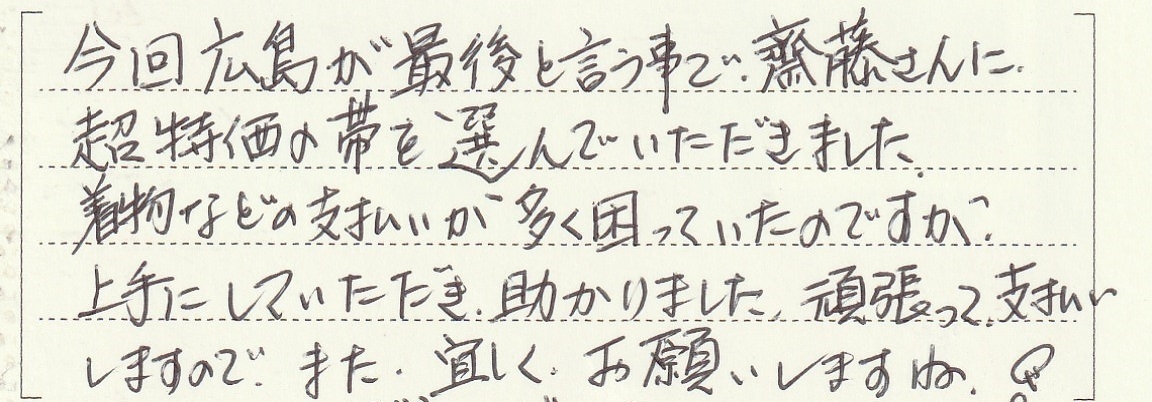 今回広島が最後と言う事で、齋藤さんに、
超特価の帯を選んでいただきました。
着物などの支払いが多く困っていたのですが、
上手にしていただき、助かりました。頑張って、支払い
しますので、また、宜しく、お願いしますね。